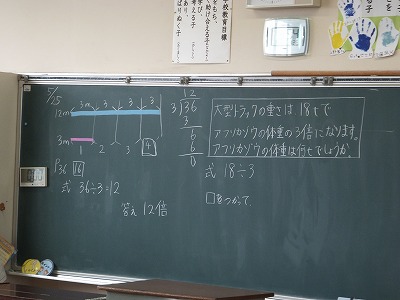 学校教育目標
5/25
3m 3 3 3
12m
3m
1 2 3 4
P36 16
式 36÷3=12
答え 12倍
12
3)36
3
6
6
0
大型トラックの重さは18tで
アフリカゾウの体重の3倍になります。
アフリカゾウの体重は何tでしょうか。
式 18÷3
□をつかって